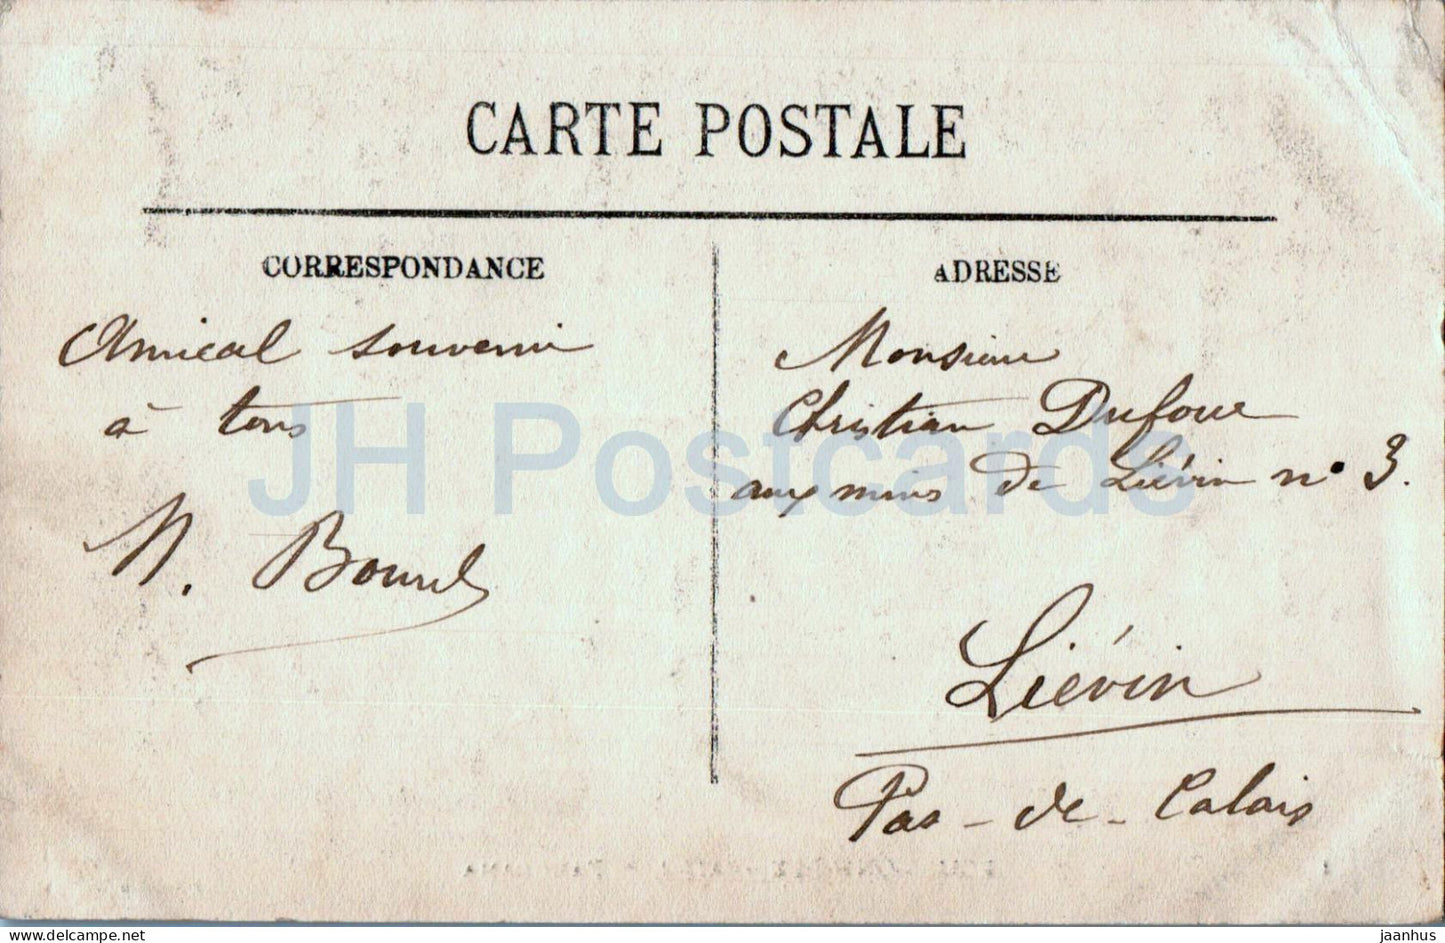 CARTE POSTALE
CORRESPONDANCE
Amical souvenir
à tous
N. Bourel
ADRESSE
Monsieur
Christian Dufour
aux mines de Liévin n° 3.
Liévin
Pas-de-Calais
JH Postcards
eu.postcardsmarket.com
jaanhus